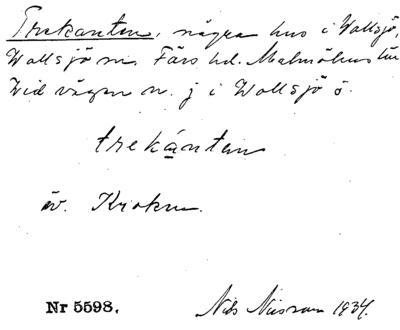 Trekanten, några hus i Wollsjö,
Wollsjö sn. Färs hd. Malmöhus län
Wid vägen n. j i Wollsjö s.
trekánten
äv. Kroken.
Nr 5598. Nils Nilsson 1934.